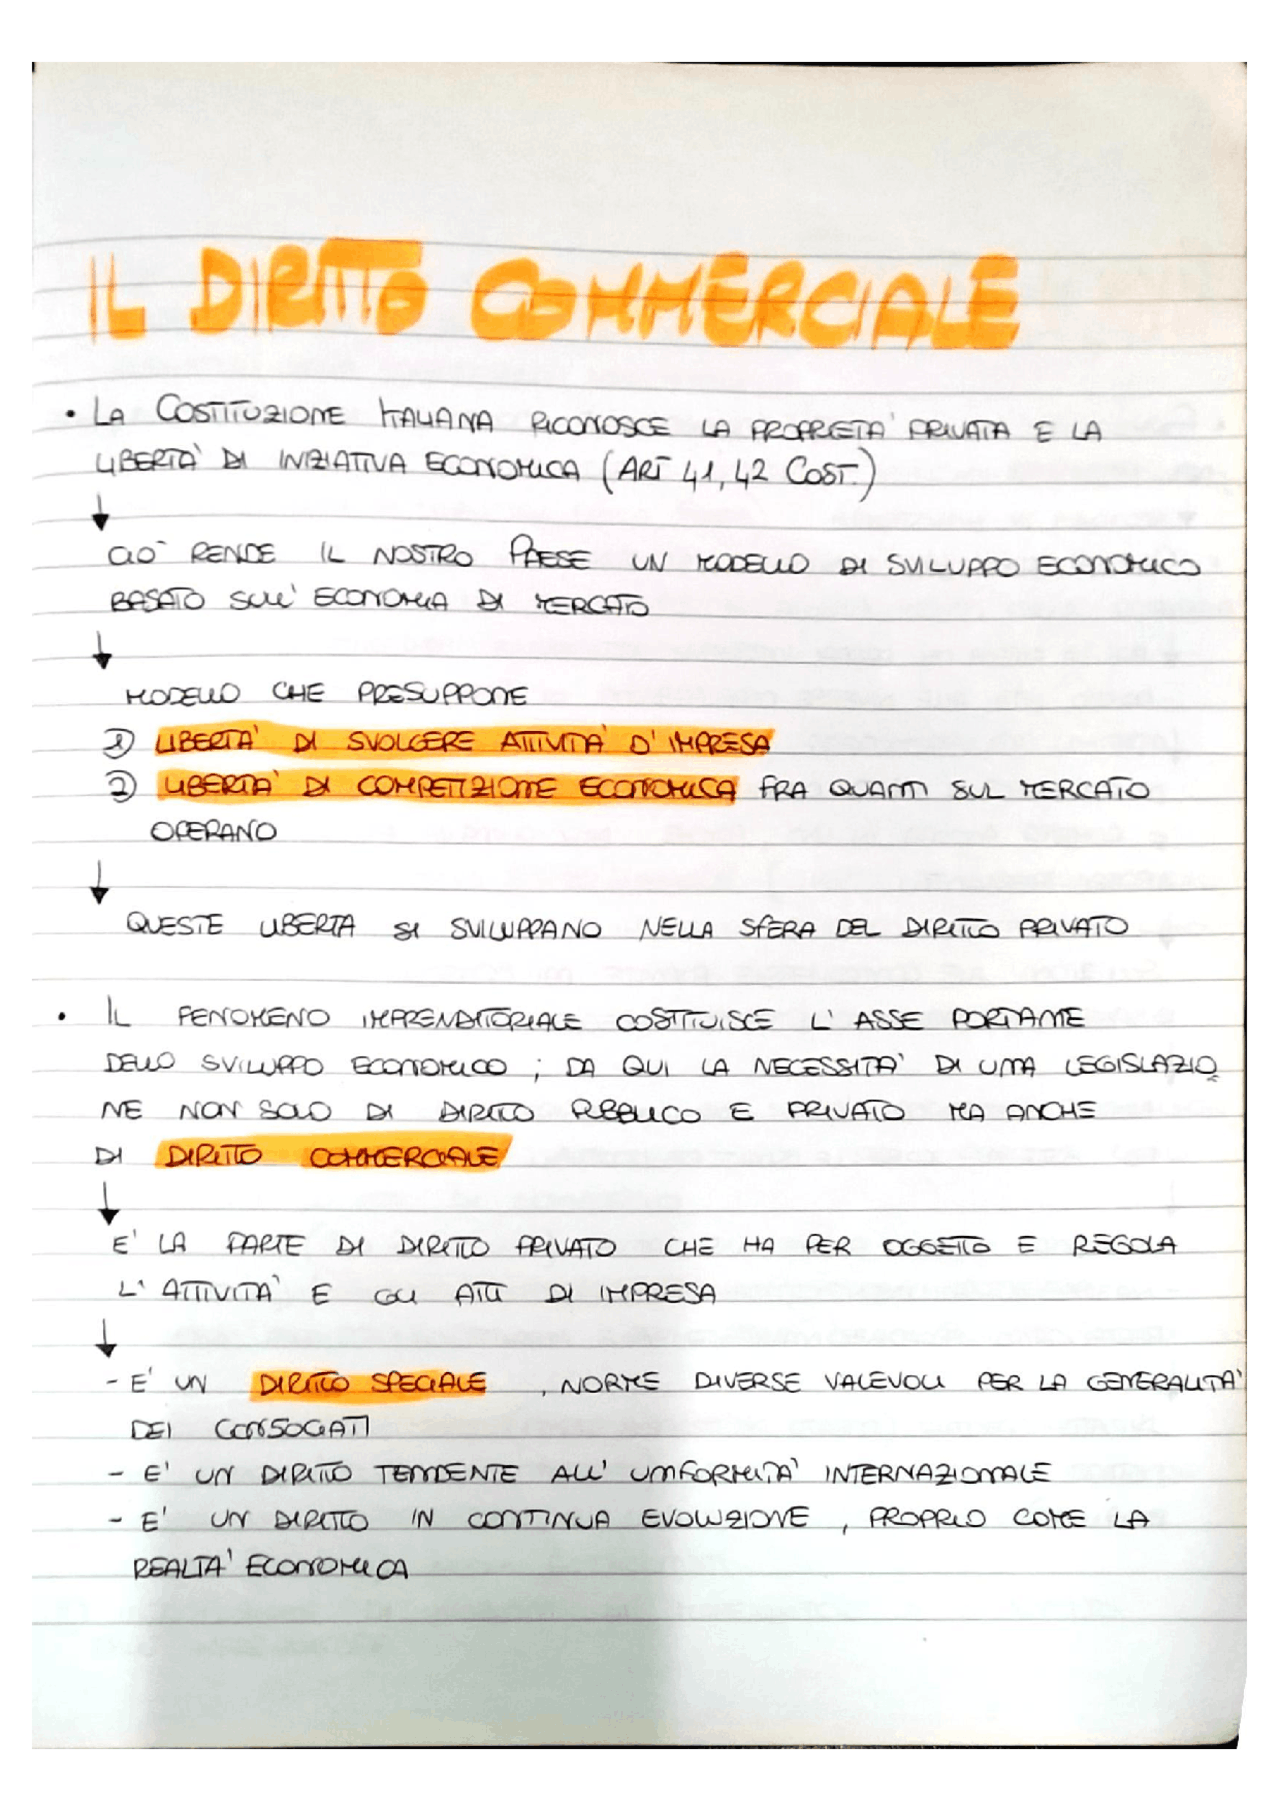 IL DIRITTO COMMERCIALE
• LA COSTITUZIONE ITALIANA RICONOSCE LA PROPRIETA' PRIVATA E LA
LIBERTA' DI INIZIATIVA ECONOMICA (ART 41, 42 COST.)
↓
CIO' RENDE IL NOSTRO PAESE UN MODELLO DI SVILUPPO ECONOMICO
BASATO SULL' ECONOMIA DI MERCATO
↓
MODELLO CHE PRESUPPONE
1) LIBERTA' DI SVOLGERE ATTIVITA' D' IMPRESA
2) LIBERTA' DI COMPETIZIONE ECONOMICA FRA QUANTI SUL MERCATO
OPERANO
↓
QUESTE LIBERTA SI SVILUPPANO NELLA SFERA DEL DIRITTO PRIVATO
• IL FENOMENO IMPRENDITORIALE COSTITUISCE L' ASSE PORTANTE
DELLO SVILUPPO ECONOMICO ; DA QUI LA NECESSITA' DI UNA LEGISLAZIO
NE NON SOLO DI DIRITTO PUBBLICO E PRIVATO MA ANCHE
DI DIRITTO COMMERCIALE
↓
E' LA PARTE DI DIRITTO PRIVATO CHE HA PER OGGETTO E REGOLA
L' ATTIVITA' E GLI ATTI DI IMPRESA
↓
- E' UN DIRITTO SPECIALE , NORME DIVERSE VALEVOLI PER LA GENERALITA'
DEI CONSOCIATI
- E' UN DIRITTO TENDENTE ALL' UNIFORMITA' INTERNAZIONALE
- E' UN DIRITTO IN CONTINUA EVOLUZIONE , PROPRIO COME LA
REALTA' ECONOMICA